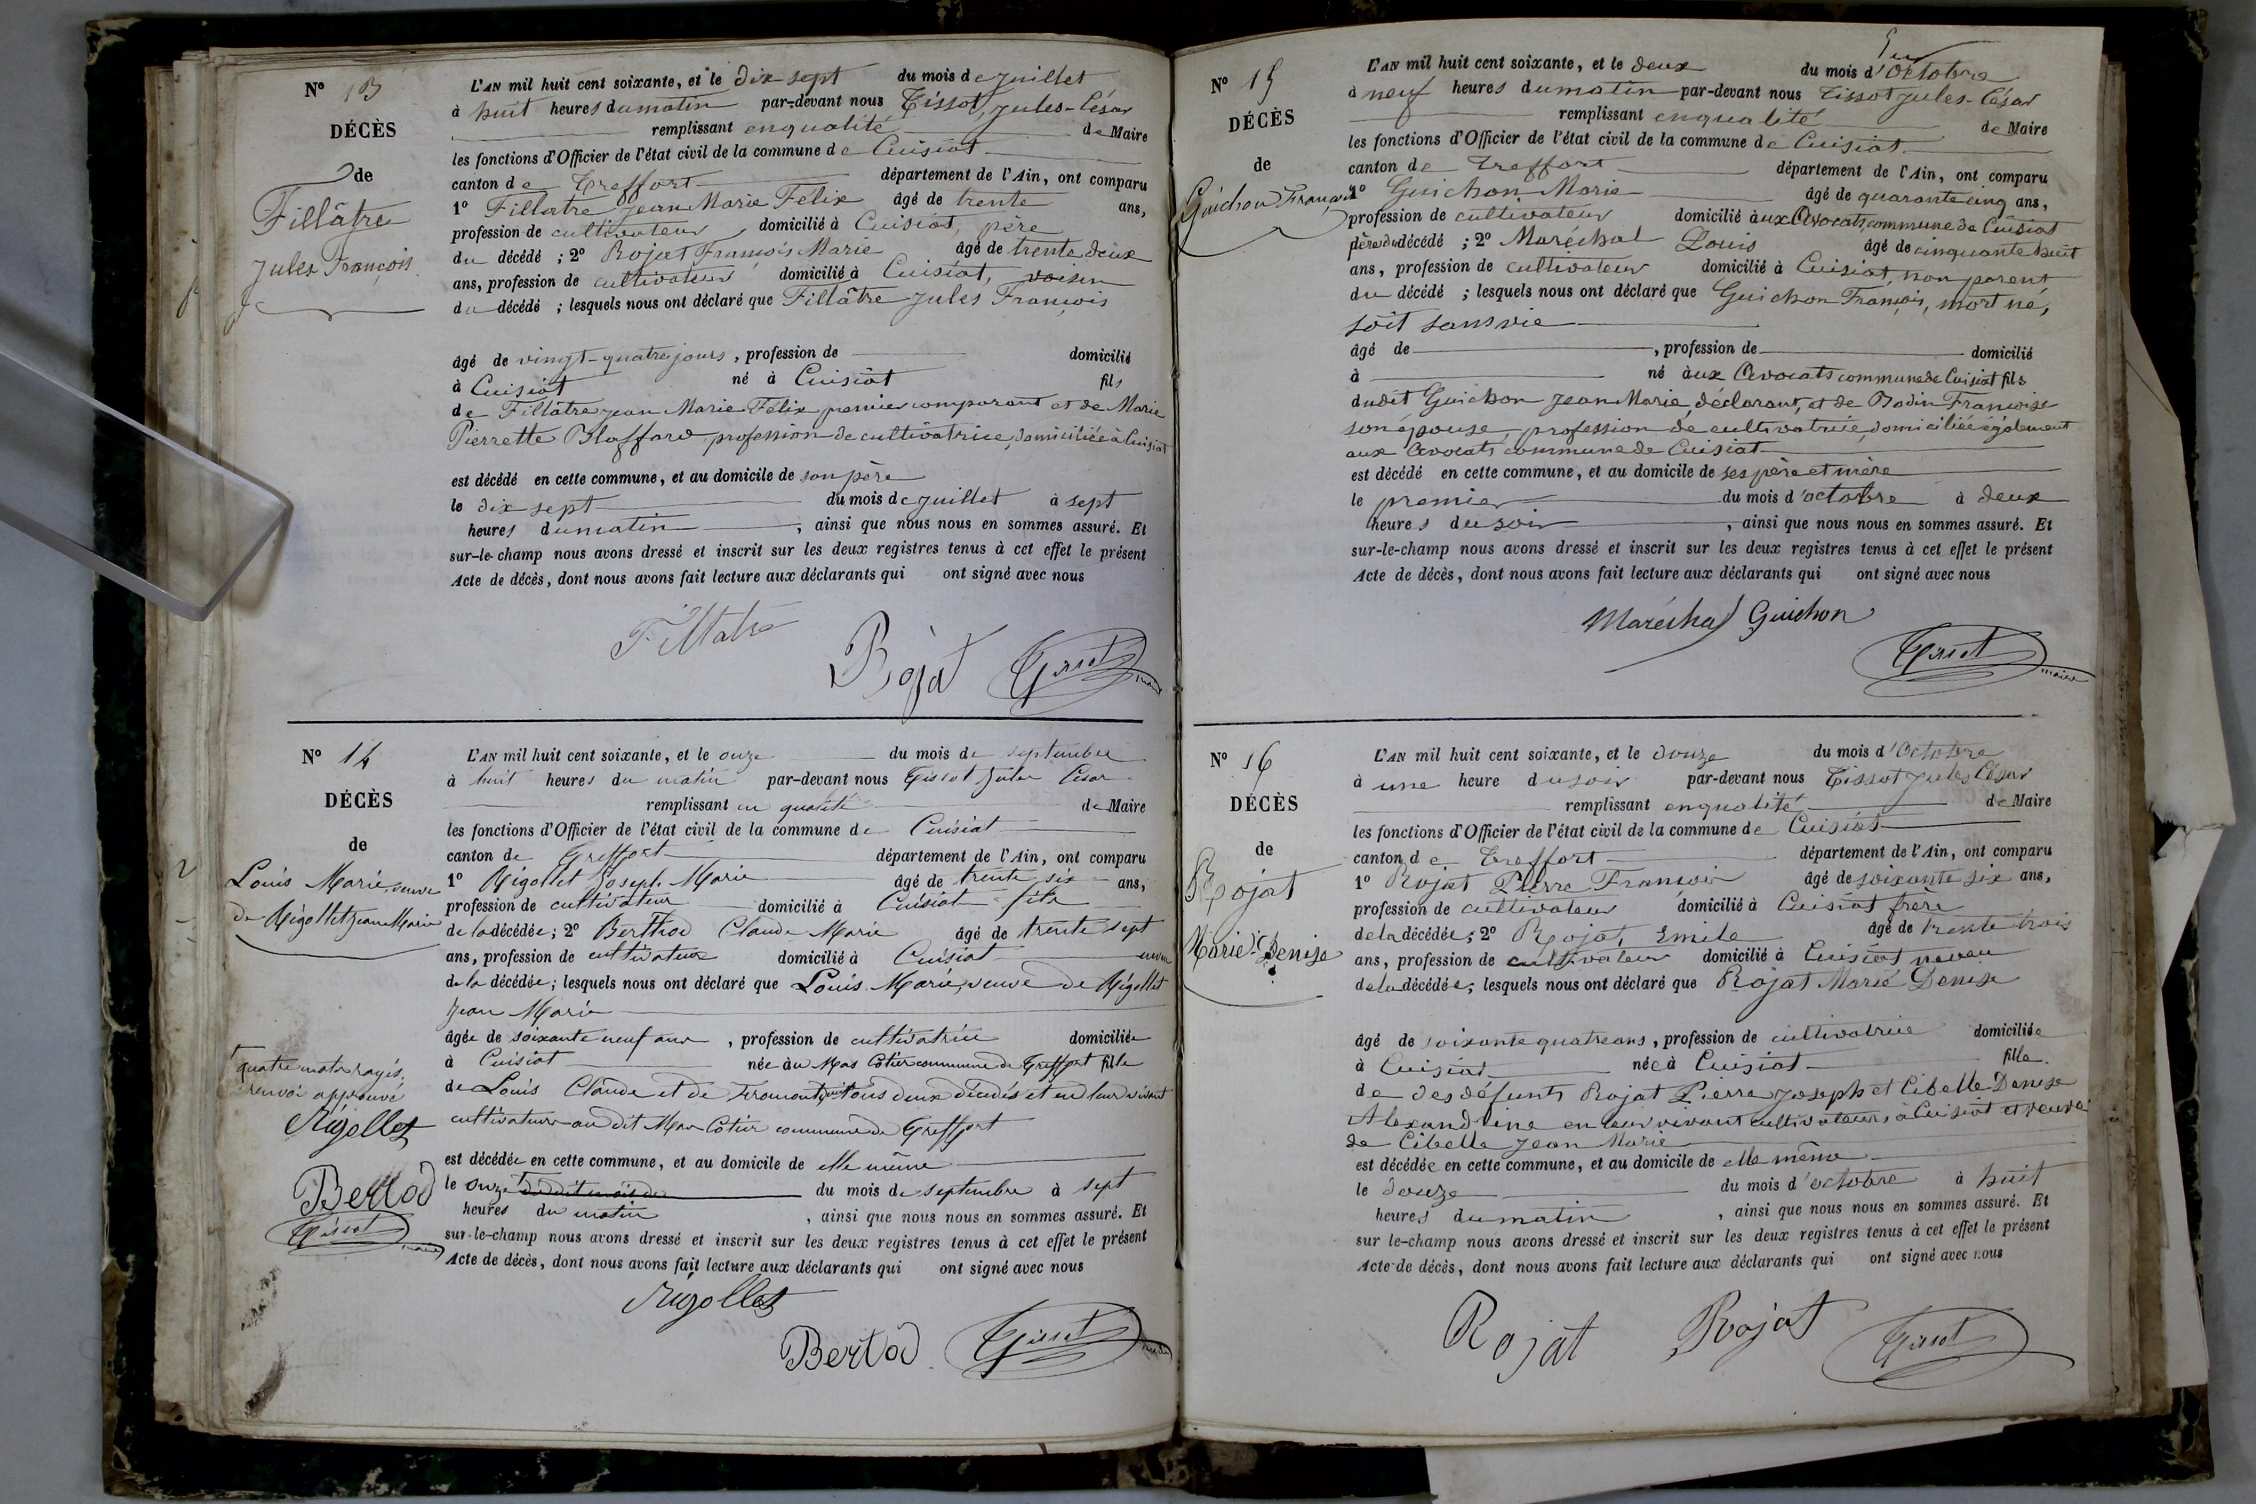 N° 13
DÉCÈS
de
Fillâtre
Jules François
L'AN mil huit cent soixante, et le dix sept du mois de juillet
à huit heures du matin par-devant nous Tissot, Jules-César
remplissant en qualité de Maire
les fonctions d'Officier de l'état civil de la commune de Cuisiat
canton de Treffort département de l'Ain, ont comparu
1° Fillatre Jean Marie Félix âgé de trente ans,
profession de cultivateur domicilié à Cuisiat, père
du décédé ; 2° Rojat François Marie âgé de trente deux
ans, profession de cultivateur domicilié à Cuisiat, voisin
du décédé ; lesquels nous ont déclaré que Fillâtre Jules François
âgé de vingt-quatre jours, profession de domicilié
à Cuisiat né à Cuisiat fils
de Fillâtre Jean Marie Félix premier comparant et de Marie
Pierrette Blaffard profession de cultivatrice, domiciliée à Cuisiat
est décédé en cette commune, et au domicile de son père
le dix sept du mois de juillet à sept
heures du matin, ainsi que nous nous en sommes assuré. Et
sur-le-champ nous avons dressé et inscrit sur les deux registres tenus à cet effet le présent
Acte de décès, dont nous avons fait lecture aux déclarants qui ont signé avec nous
Fillatre
Rojat Tissot maire
N° 14
DÉCÈS
de
Louis Marie veuve
de Rigollet Jean Marie
quatre mots rayés
renvoi approuvé
Rigollet
Bertod
Tissot maire
L'AN mil huit cent soixante, et le onze du mois de septembre
à huit heures du matin par-devant nous Tissot Jules César
remplissant en qualité de Maire
les fonctions d'Officier de l'état civil de la commune de Cuisiat
canton de Treffort département de l'Ain, ont comparu
1° Rigollet Joseph Marie âgé de trente six ans,
profession de cultivateur domicilié à Cuisiat fils
de la décédée ; 2° Berthod Claude Marie âgé de trente sept
ans, profession de cultivateur domicilié à Cuisiat
de la décédée ; lesquels nous ont déclaré que Louis Marie, veuve de Rigollet
Jean Marie
âgée de soixante neuf ans, profession de cultivatrice domiciliée
à Cuisiat née au Mas Cotier commune de Treffort fille
de Louis Claude et de tous deux décédés et en leur vivant
cultivateurs au dit Mas Cotier commune de Treffort
est décédée en cette commune, et au domicile de elle même
le onze du mois de septembre à sept
heures du matin, ainsi que nous nous en sommes assuré. Et
sur-le-champ nous avons dressé et inscrit sur les deux registres tenus à cet effet le présent
Acte de décès, dont nous avons fait lecture aux déclarants qui ont signé avec nous
Rigollet
Bertod Tissot maire
N° 15
DÉCÈS
de
Guichon François
L'AN mil huit cent soixante, et le deux du mois d'Octobre
à neuf heures du matin par-devant nous Tissot Jules-César
remplissant en qualité de Maire
les fonctions d'Officier de l'état civil de la commune de Cuisiat
canton de Treffort département de l'Ain, ont comparu
1° Guichon Marie âgé de quarante cinq ans,
profession de cultivateur domicilié aux Avocats, commune de Cuisiat
père du décédé ; 2° Maréchal Louis âgé de cinquante huit
ans, profession de cultivateur domicilié à Cuisiat, non parent
du décédé ; lesquels nous ont déclaré que Guichon François, mort né,
soit sans vie
âgé de, profession de domicilié
à né aux Avocats commune de Cuisiat fils
dudit Guichon Jean Marie, déclarant, et de Bodin Françoise
son épouse, profession de cultivatrice, domiciliée également
aux Avocats commune de Cuisiat
est décédé en cette commune, et au domicile de ses père et mère
le premier du mois d'octobre à deux
heures du soir, ainsi que nous nous en sommes assuré. Et
sur-le-champ nous avons dressé et inscrit sur les deux registres tenus à cet effet le présent
Acte de décès, dont nous avons fait lecture aux déclarants qui ont signé avec nous
Maréchal Guichon
Tissot maire
N° 16
DÉCÈS
de
Rojat
Marie Denise
L'AN mil huit cent soixante, et le douze du mois d'Octobre
à une heure du soir par-devant nous Tissot Jules César
remplissant en qualité de Maire
les fonctions d'Officier de l'état civil de la commune de Cuisiat
canton de Treffort département de l'Ain, ont comparu
1° Rojat Pierre François âgé de soixante six ans,
profession de cultivateur domicilié à Cuisiat frère
de la décédée ; 2° Rojat, Emile âgé de trente trois
ans, profession de cultivateur domicilié à Cuisiat neveu
de la décédée ; lesquels nous ont déclaré que Rojat Marie Denise
âgé de soixante quatre ans, profession de cultivatrice domiciliée
à Cuisiat née à Cuisiat fille
de des défunts Rojat Pierre Joseph et Cibelle Denise
Alexandrine en leur vivant cultivateurs à Cuisiat et veuve
de Cibelle Jean Marie
est décédée en cette commune, et au domicile de elle même
le douze du mois d'octobre à huit
heures du matin, ainsi que nous nous en sommes assuré. Et
sur le-champ nous avons dressé et inscrit sur les deux registres tenus à cet effet le présent
Acte de décès, dont nous avons fait lecture aux déclarants qui ont signé avec nous
Rojat Rojat Tissot